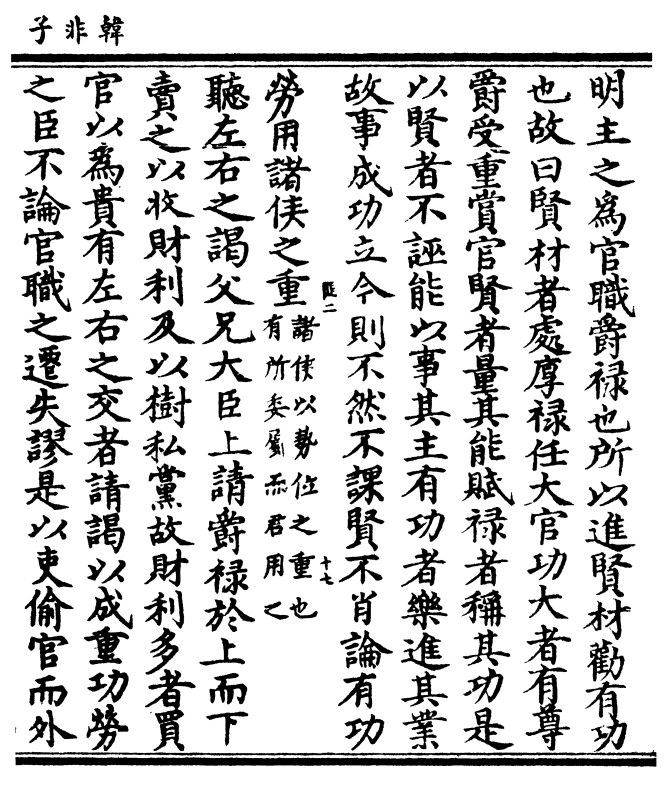 韓非子
明主之為官職爵祿也所以進賢材勸有功
也故曰賢材者處厚祿任大官功大者有尊
爵受重賞官賢者量其能賦祿者稱其功是
以賢者不誣能以事其主有功者樂進其業
故事成功立今則不然不課賢不肖論有功
匪二
十七
勞用諸侯之重諸侯以勢位之重也有所委屬而君用之
聽左右之謁父兄大臣上請爵祿於上而下
賣之以收財利及以樹私黨故財利多者買
官以為貴有左右之交者請謁以成重功勞
之臣不論官職之遷失謬是以吏偷官而外